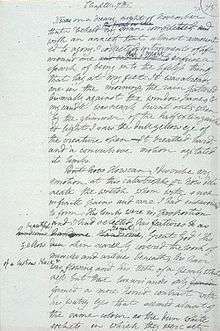 Chapter 7th
It was on a dreary night of November
that I beheld my man completed and
with an anxiety that almost amount
ed to agony I collected instruments of life
around me and endeavoured to infuse a
spark of being into the lifeless thing
that lay at my feet. It was already
one in the morning, the rain pattered
dismally against the window panes &
my candle was nearly burnt out, when
by the glimmer of the half extinguish
ed light I saw the dull yellow eye of
the creature open. It breathed hard,
and a convulsive motion agitated
its limbs.
But how How can I describe my
emotion at this catastrophe; or how deli
neate the wretch whom with such
infinite pains and care I had endeavoured
to form. His limbs were in proportion
and I had selected his features as
beautiful
skin scarcely covered the work of
muscles and arteries beneath; his hair
of a lustrous black &
flowing and his teeth of a pearly white
ness but these only
formed a more horrid contrast with
his watry eyes that seemed almost of
the same colour as the dun white
sockets in which they were set